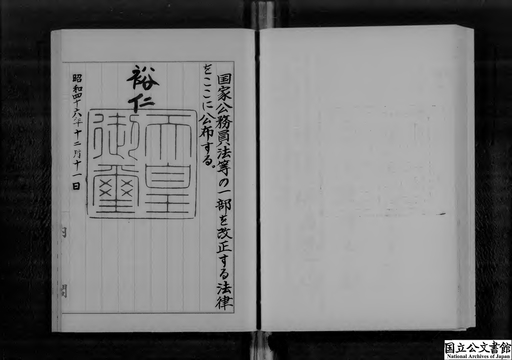 国家公務員法等の一部を改正する法律
をここに公布する。
裕仁
天皇
御璽
昭和四十六年十二月十一日
内閣
国立公文書館
National Archives of Japan